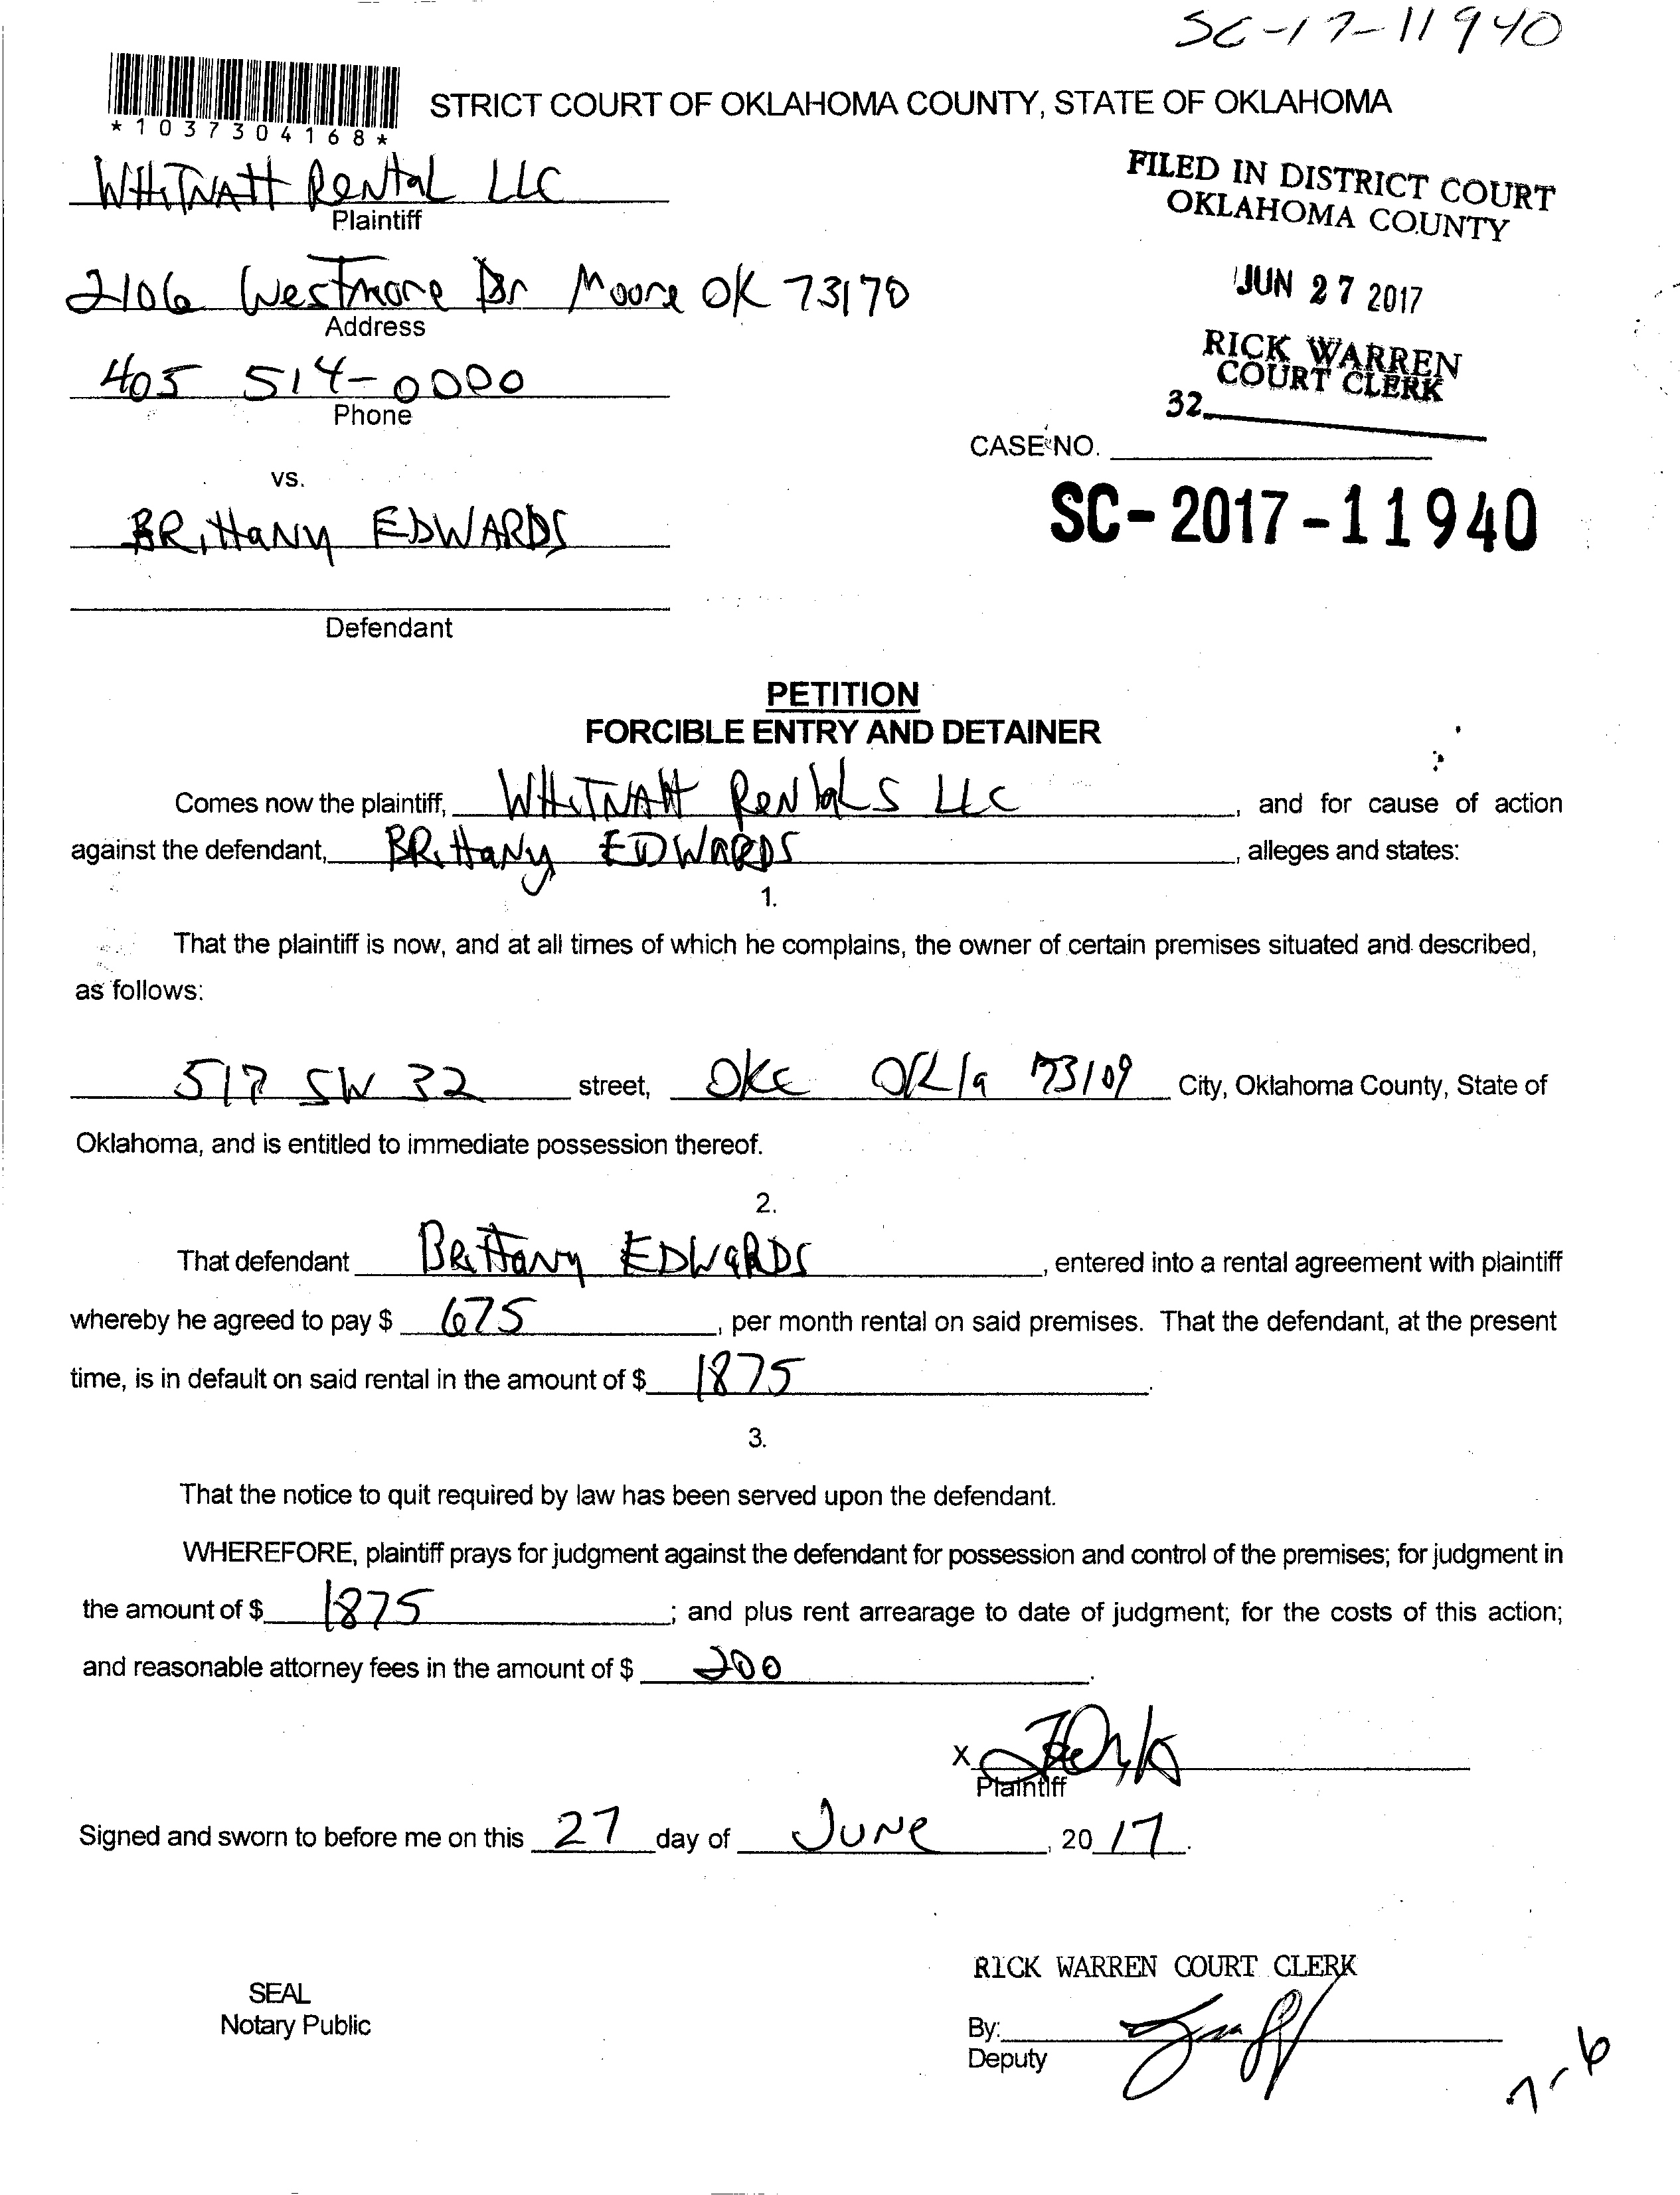 SC-17-11940
*1037304168*
STRICT COURT OF OKLAHOMA COUNTY, STATE OF OKLAHOMA
WHITNATT RENTAL LLC
Plaintiff
FILED IN DISTRICT COURT
OKLAHOMA COUNTY
2106 Westmore Dr Moore OK 73170
Address
JUN 27 2017
405 514-0000
Phone
RICK WARREN
COURT CLERK
32
CASE NO.
vs.
SC-2017-11940
BRITTANY EDWARDS
Defendant
PETITION
FORCIBLE ENTRY AND DETAINER
Comes now the plaintiff, WHITNATT RENTALS LLC, and for cause of action
against the defendant, BRITTANY EDWARDS, alleges and states:
1.
That the plaintiff is now, and at all times of which he complains, the owner of certain premises situated and described,
as follows:
517 SW 32 street, OKC Okla 73109 City, Oklahoma County, State of
Oklahoma, and is entitled to immediate possession thereof.
2.
That defendant Brittany EDWARDS, entered into a rental agreement with plaintiff
whereby he agreed to pay $ 675, per month rental on said premises. That the defendant, at the present
time, is in default on said rental in the amount of $ 1875.
3.
That the notice to quit required by law has been served upon the defendant.
WHEREFORE, plaintiff prays for judgment against the defendant for possession and control of the premises; for judgment in
the amount of $ 1875; and plus rent arrearage to date of judgment; for the costs of this action;
and reasonable attorney fees in the amount of $ 200.
X
Plaintiff
Signed and sworn to before me on this 27 day of June, 2017.
RICK WARREN COURT CLERK
SEAL
Notary Public
By:
Deputy
7-6